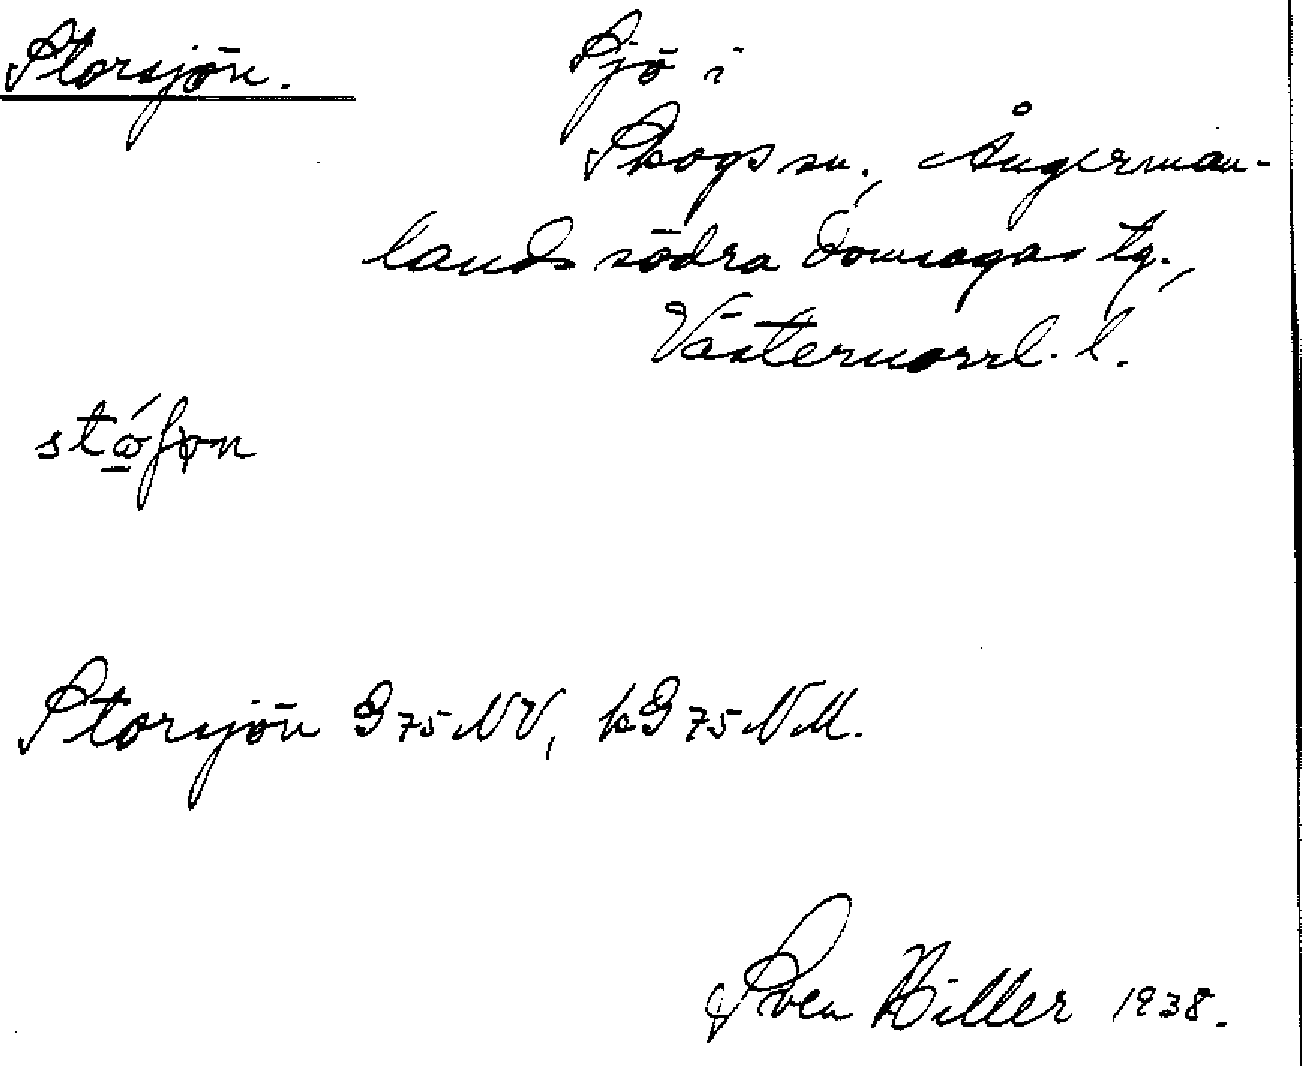 Storsjön. Sjö i
Skogs sn., Ångerman-
lands södra domsagas tg.,
Västernorrl. l.
Storsjön G75NV, kG75NM.
Sven Hiller 1938.